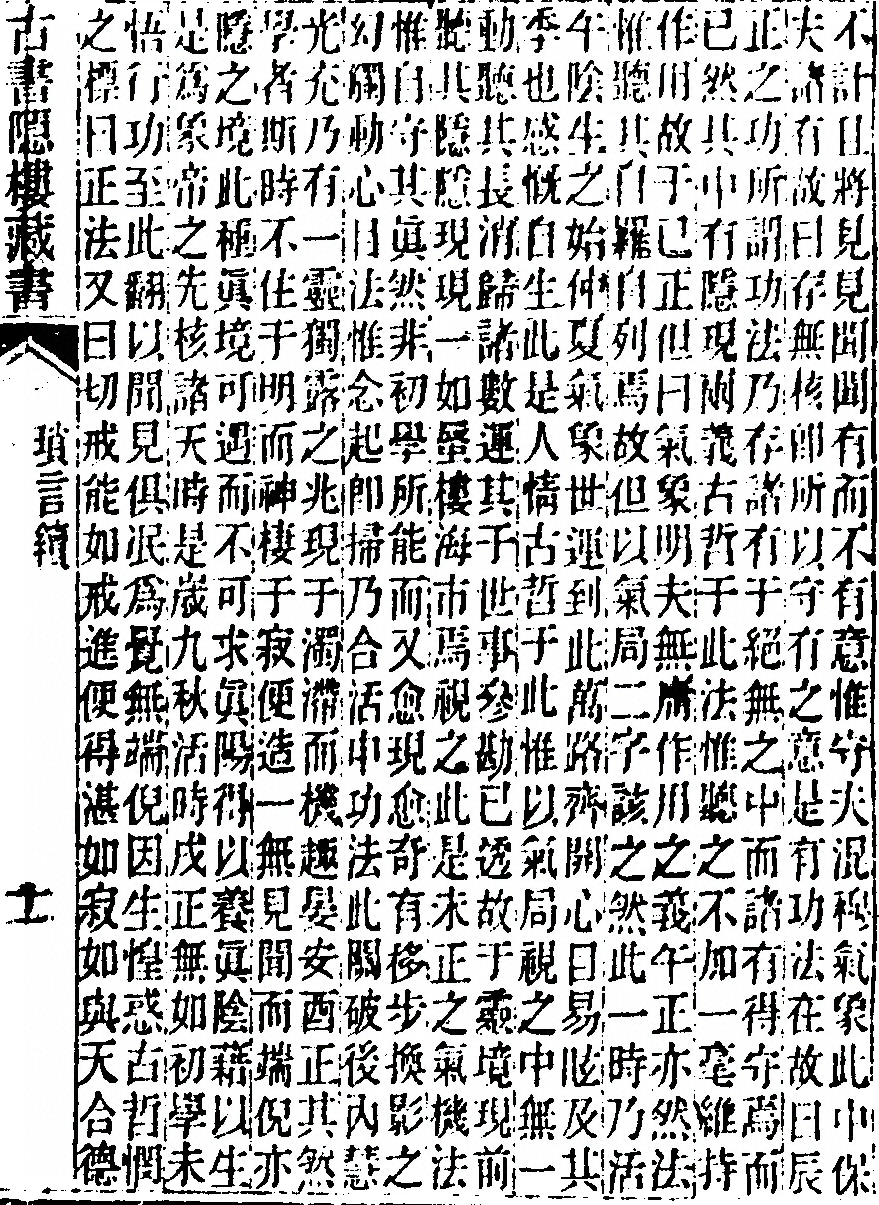 不計且將見見聞聞有而不有意惟守夫混穆氣象此中保
夫諸有故曰存無核即所以守有之意是有功法在故曰辰
正之功所謂功法乃存諸有于絕無之中而諸有得守焉而
已然其中有隱現兩義古哲于此法惟聽之不加一毫維持
作用故于巳正但曰氣象明夫無庸作用之義午正亦然法
惟聽其自羅自列焉故但以氣局二字該之然此一時乃活
午陰生之始仲夏氣象世運到此萬路齊開心目易眩及其
季也感慨自生此是人情古哲于此惟以氣局視之中無一
動聽其長消歸諸數運其于世事參勘已透故于靈境現前
聽其隱隱現現一如蜃樓海市焉視之此是未正之氣機法
惟自守其眞然非初學所能而又愈現愈奇有移步換影之
幻觸動心目法惟念起卽掃乃合活申功法此關破後內慧
光充乃有一靈獨露之兆現于濁滯而機趣晏安酉正其然
學者斯時不住于明而神棲于寂便造一無見聞而端倪亦
隱之境此極眞境可遇而不可求眞陽得以養眞陰藉以生
是爲象帝之先核諸天時是嵗九秋活時戌正無如初學未
悟行功至此翻以聞見俱泯爲覺無端倪因生惶惑古哲憫
之標曰正法又曰切戒能如戒進便得湛如寂如與天合德
古書隱樓藏書
瑣言續
十一